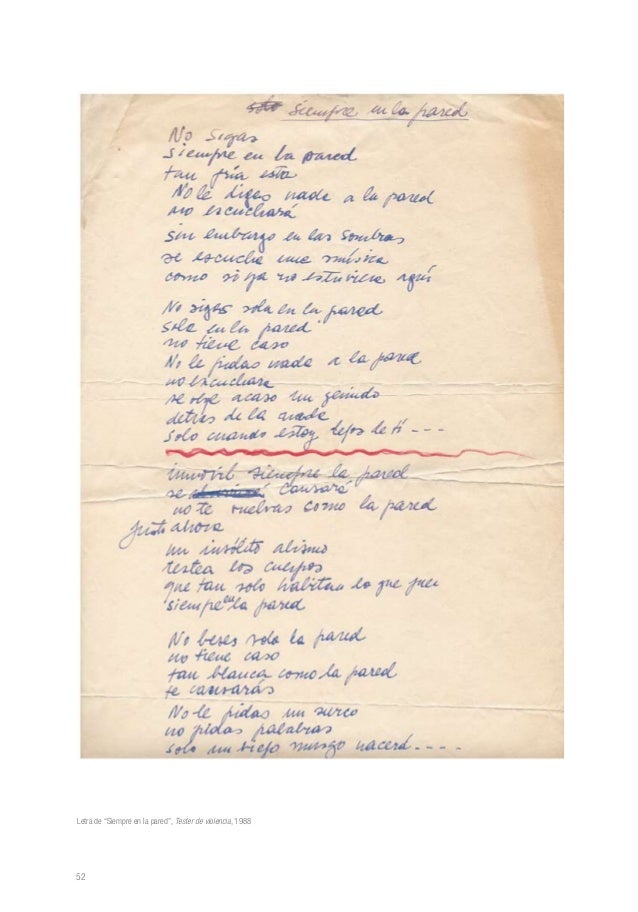 solo siempre en la pared
No sigas
siempre en la pared
tan fría esta
No le digas nada a la pared
no escuchará
sin embargo en las sombras
se escucha una música
como si ya no estuviera aquí
No sigas sola en la pared
sola en la pared
no tiene caso
No le pidas nada a la pared
no escuchara
se oye acaso un gemido
detras de la
solo cuando estoy lejos de ti - - -
inmóvil siempre la pared
se cansará
no te vuelvas como la pared
Justo ahora
un insólito abismo
testea los cuerpos
que tan solo habitan lo que fue
siempre en la pared
No beses sola la pared
no tiene caso
tan blanca como la pared
te cansarás
No le pidas un surco
no pidas palabras
solo un viejo musgo nacerá - - - -
Letra de “Siempre en la pared”, Tester de violencia, 1988
52